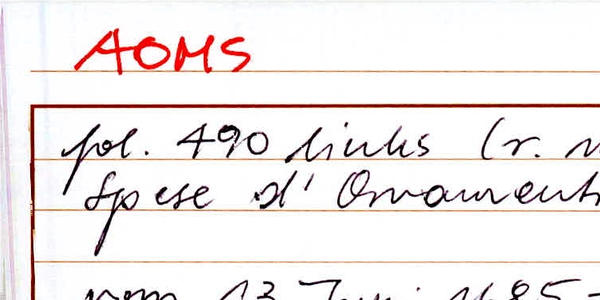 AOMS
fol. 490 links (r.
Spese d'Ornament
vom 13 Juni 1685